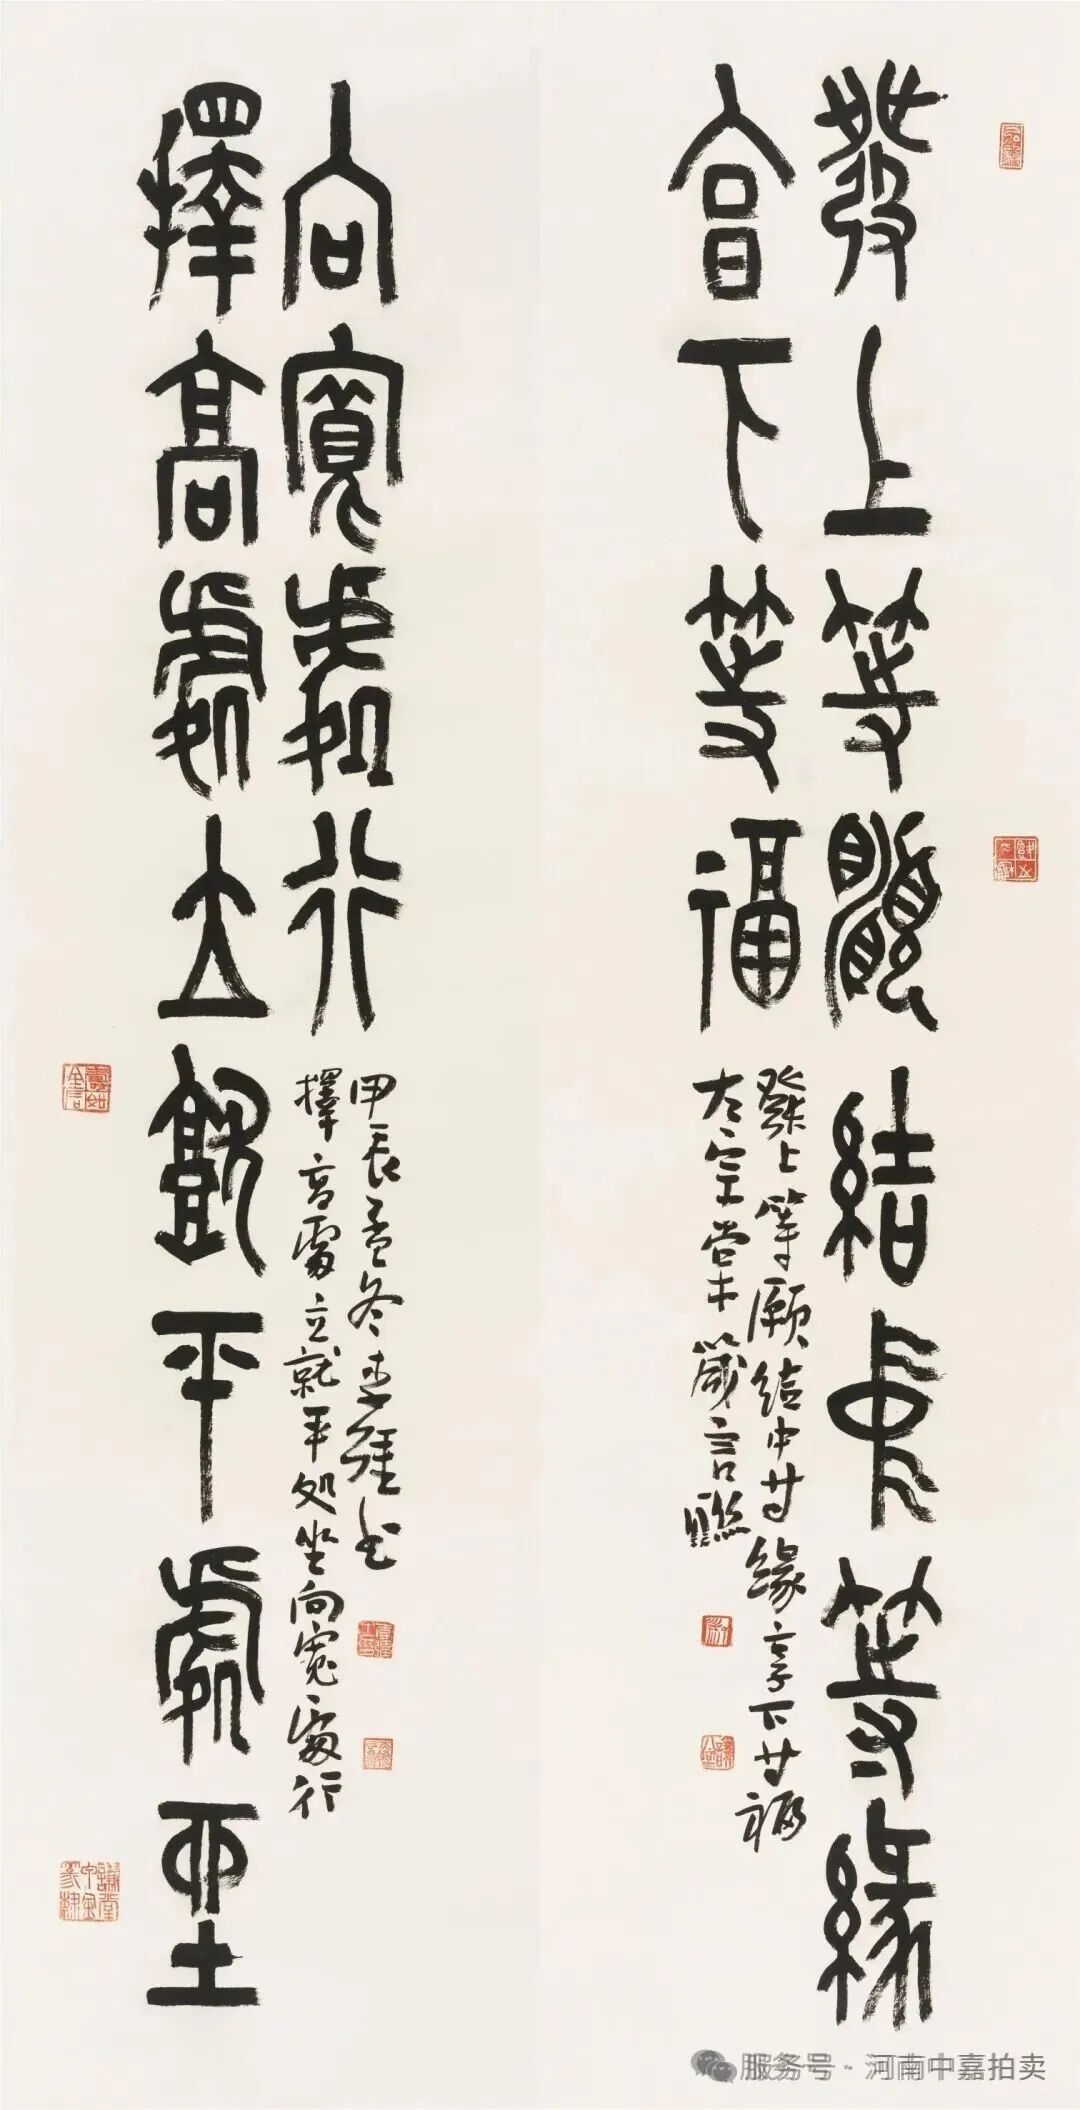 發上等願結中等緣
享下等福
發上等願結中等緣享下等福
左宗棠箴言聯
擇高處立就平處坐
向寬處行
擇高處立就平处坐向寬處行
甲辰孟冬李強书
服务号 · 河南中嘉拍卖